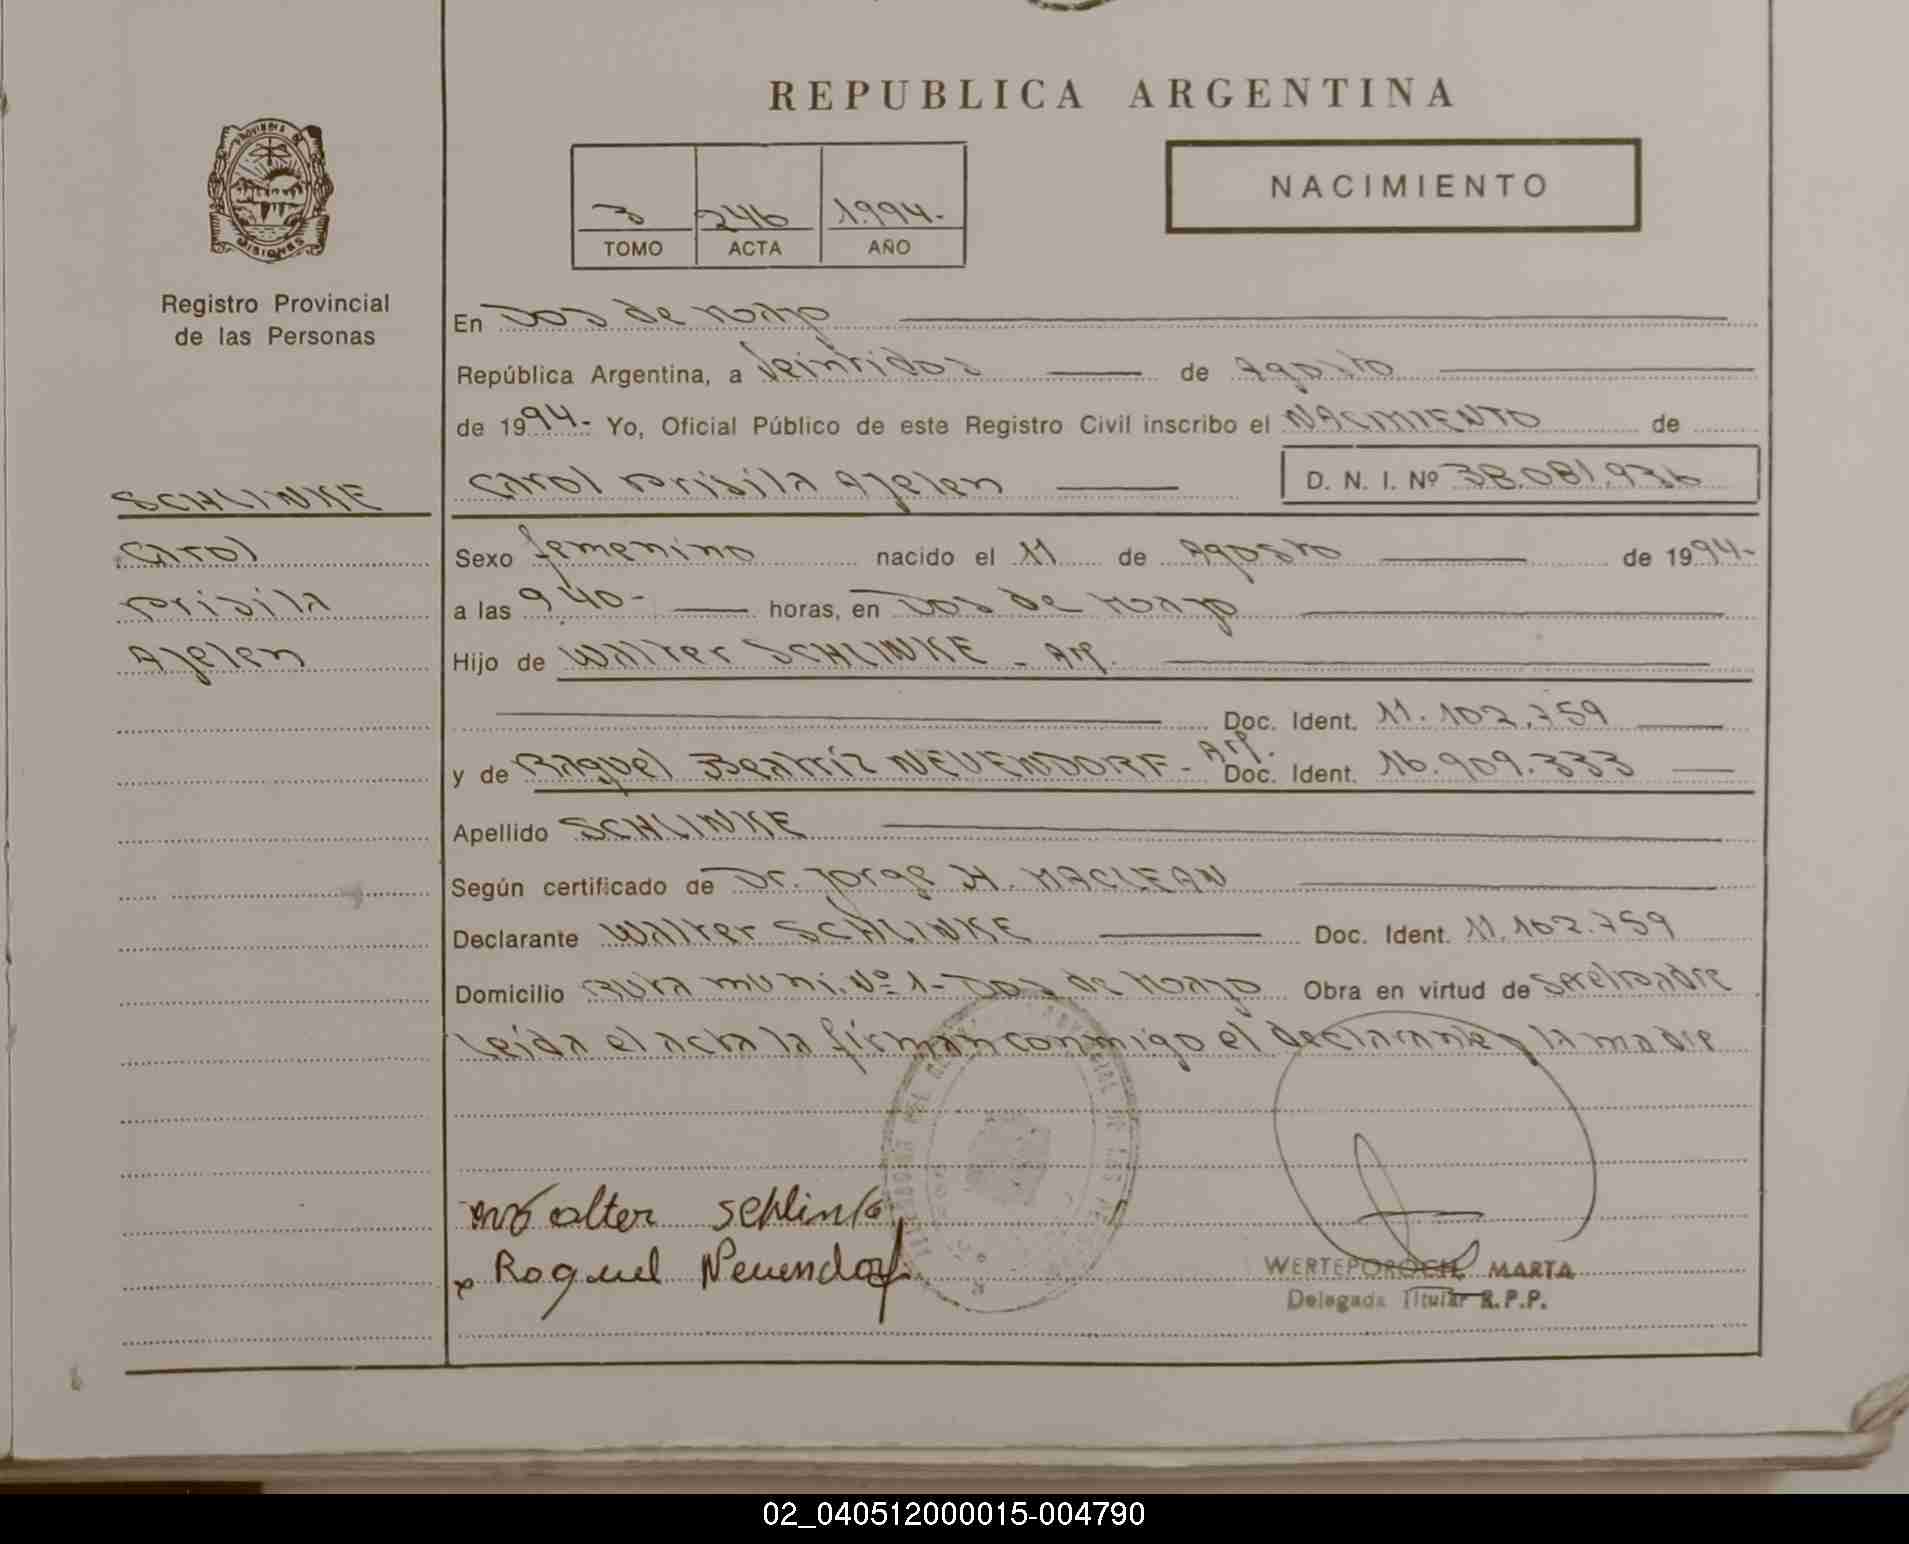 REPUBLICA ARGENTINA
PROVINCIA DE
MISIONES
Registro Provincial
de las Personas
NACIMIENTO
3 246 1994.-
TOMO ACTA AÑO
En Dos de Mayo
República Argentina, a Veintidos de Agosto
de 1994.- Yo, Oficial Público de este Registro Civil inscribo el NACIMIENTO de
Carol Prisila Ajelen D. N. I. Nº 38.081.936
SCHLINKE
Carol
Prisila
Ajelen
Sexo femenino nacido el 11 de Agosto de 1994.-
a las 9,40.- horas, en Dos de Mayo
Hijo de Walter SCHLINKE - Arg.
Doc. Ident. 11.102.759
y de Raquel Beatriz NEUENDORF - Arg. Doc. Ident. 16.909.333
Apellido SCHLINKE
Según certificado de Dr. Jorge H. MACLEAN
Declarante Walter SCHLINKE Doc. Ident. 11.102.759
Domicilio Ruta muni. Nº 1 - Dos de Mayo Obra en virtud de ser el padre
Leida el acta la firman conmigo el declarante y la madre
Walter Schlinke
Raquel Neuendorf
WERTEPOROCH, MARTA
Delegada Titular R.P.P.
02_040512000015-004790